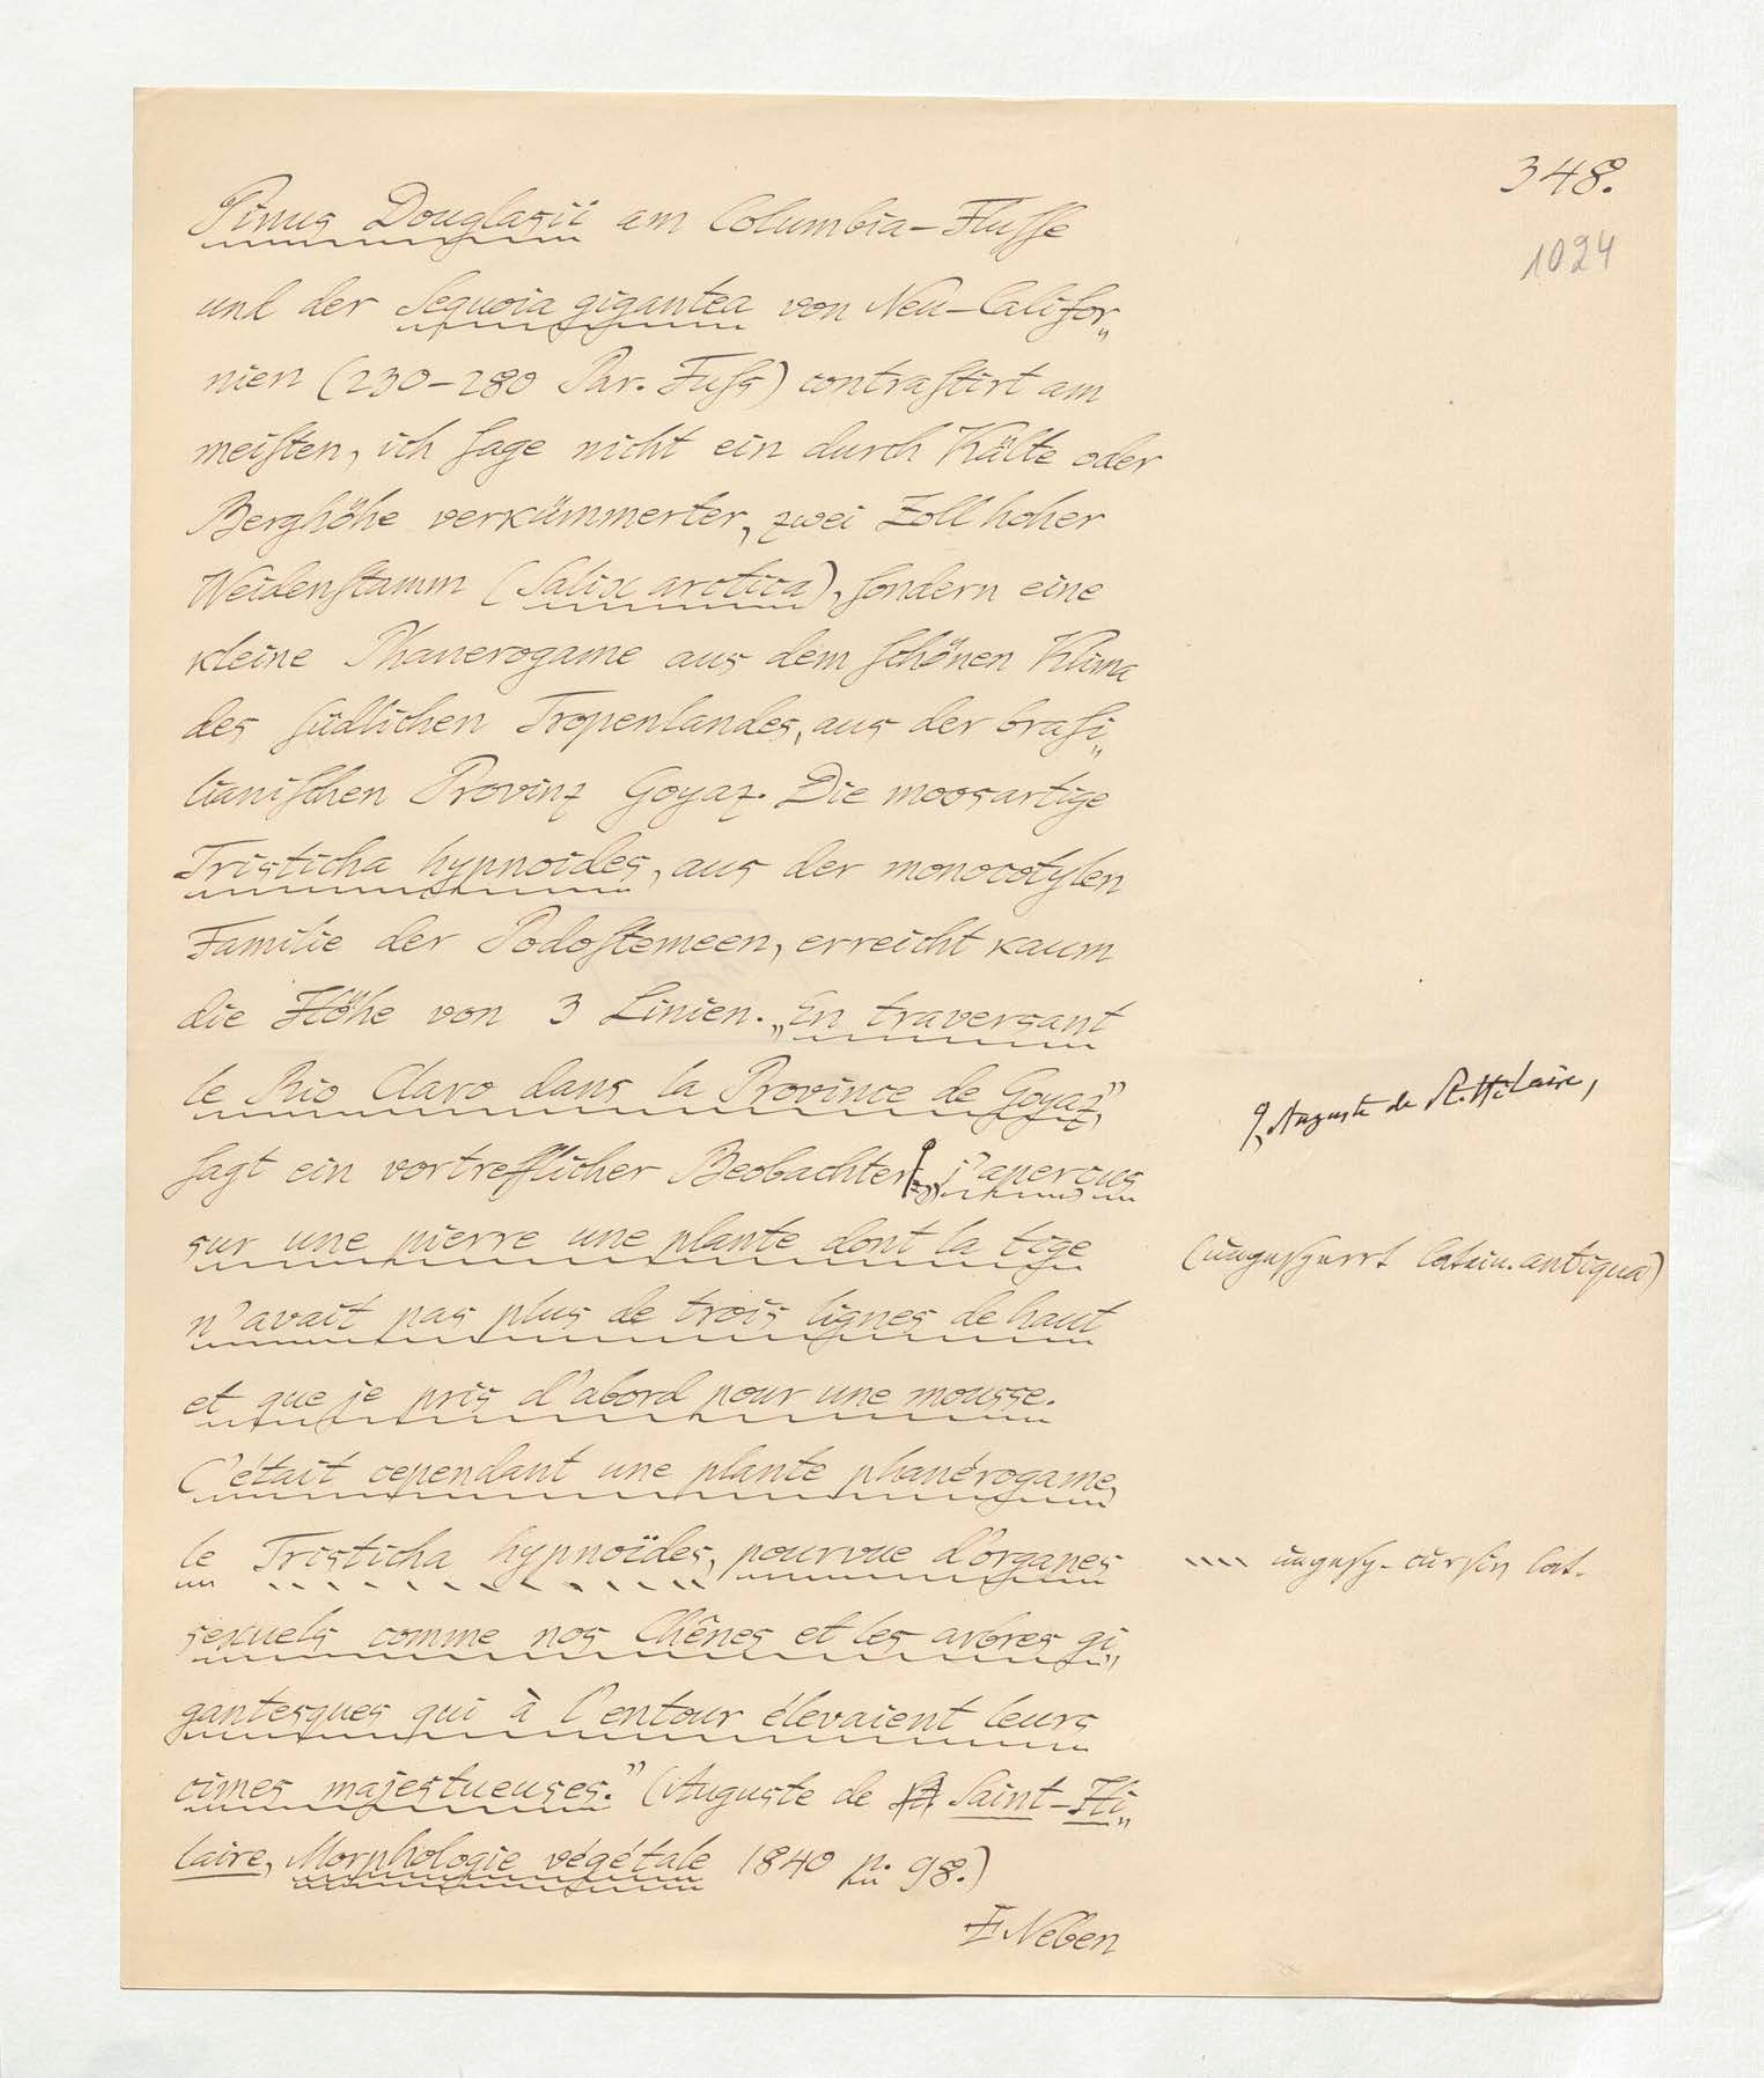 348.
1024
Pinus Douglasii am Columbia-Fluſſe
und der Sequoia gigantea von Neu-Califor„
nien (230-280 Par. Fuſs) contraſtirt am
meiſten, ich ſage nicht ein durch Kälte oder
Berghöhe verkümmerter, zwei Zoll hoher
Weidenſtamm (Salix arctica), ſondern eine
kleine Phanerogame aus dem ſchönen Klima
des ſüdlichen Tropenlandes, aus der braſi„
lianiſchen Provinz Goyaz. Die moosartige
Tristicha hypnoides, aus der monocotylen
Familie der Podoſtemeen, erreicht kaum
die Höhe von 3 Linien. „En traversant
le Rio Claro dans la Province de Goyaz”,
Auguste de St. Hilaire,
ſagt ein vortrefflicher Beobachter, „j'aperçus
sur une pierre une plante dont la tige
(ungesperrt latein. antiqua)
n'avait pas plus de trois lignes de haut
et que je pris d'abord pour une mousse.
C'était cependant une plante phanérogame,
le Tristicha hypnoïdes, pourvue d'organes
ungesp. cursiv lat.
sexuels comme nos Chênes et les arbres gi„
gantesques qui à l'entour élevaient leurs
cimes majestueuses.” (Auguste de Saint-Hi„
laire, Morphologie végétale 1840 p. 98.)
Neben